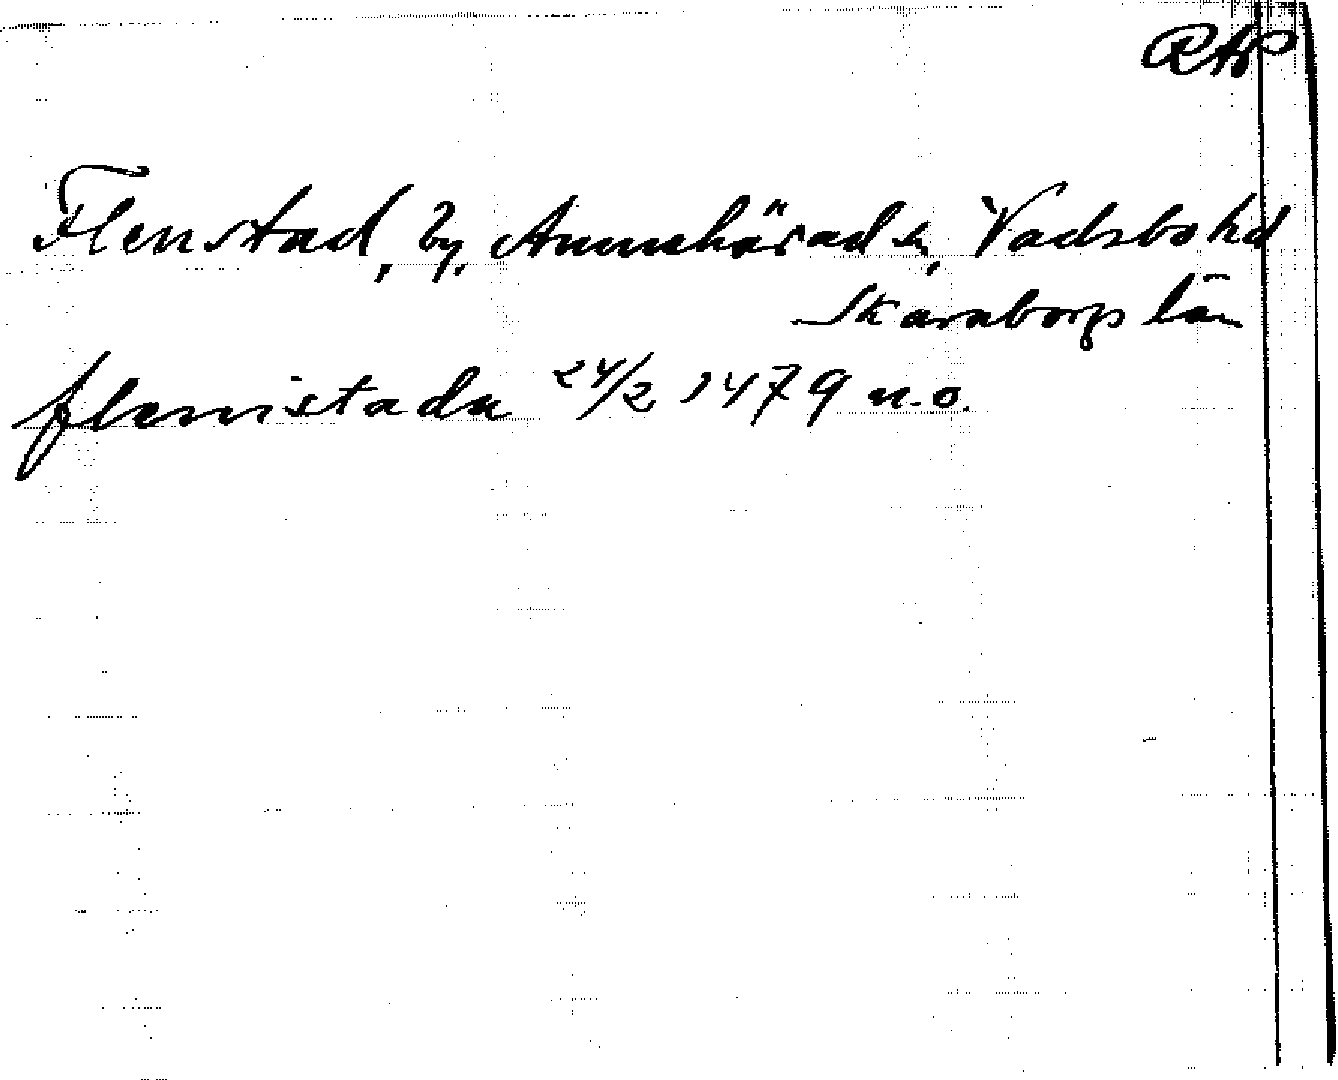 RAP
Flenstad, by, Amnehärad sn, Vadsbo hd
Skaraborgs län
flenistada 24/2 1479 n.o.